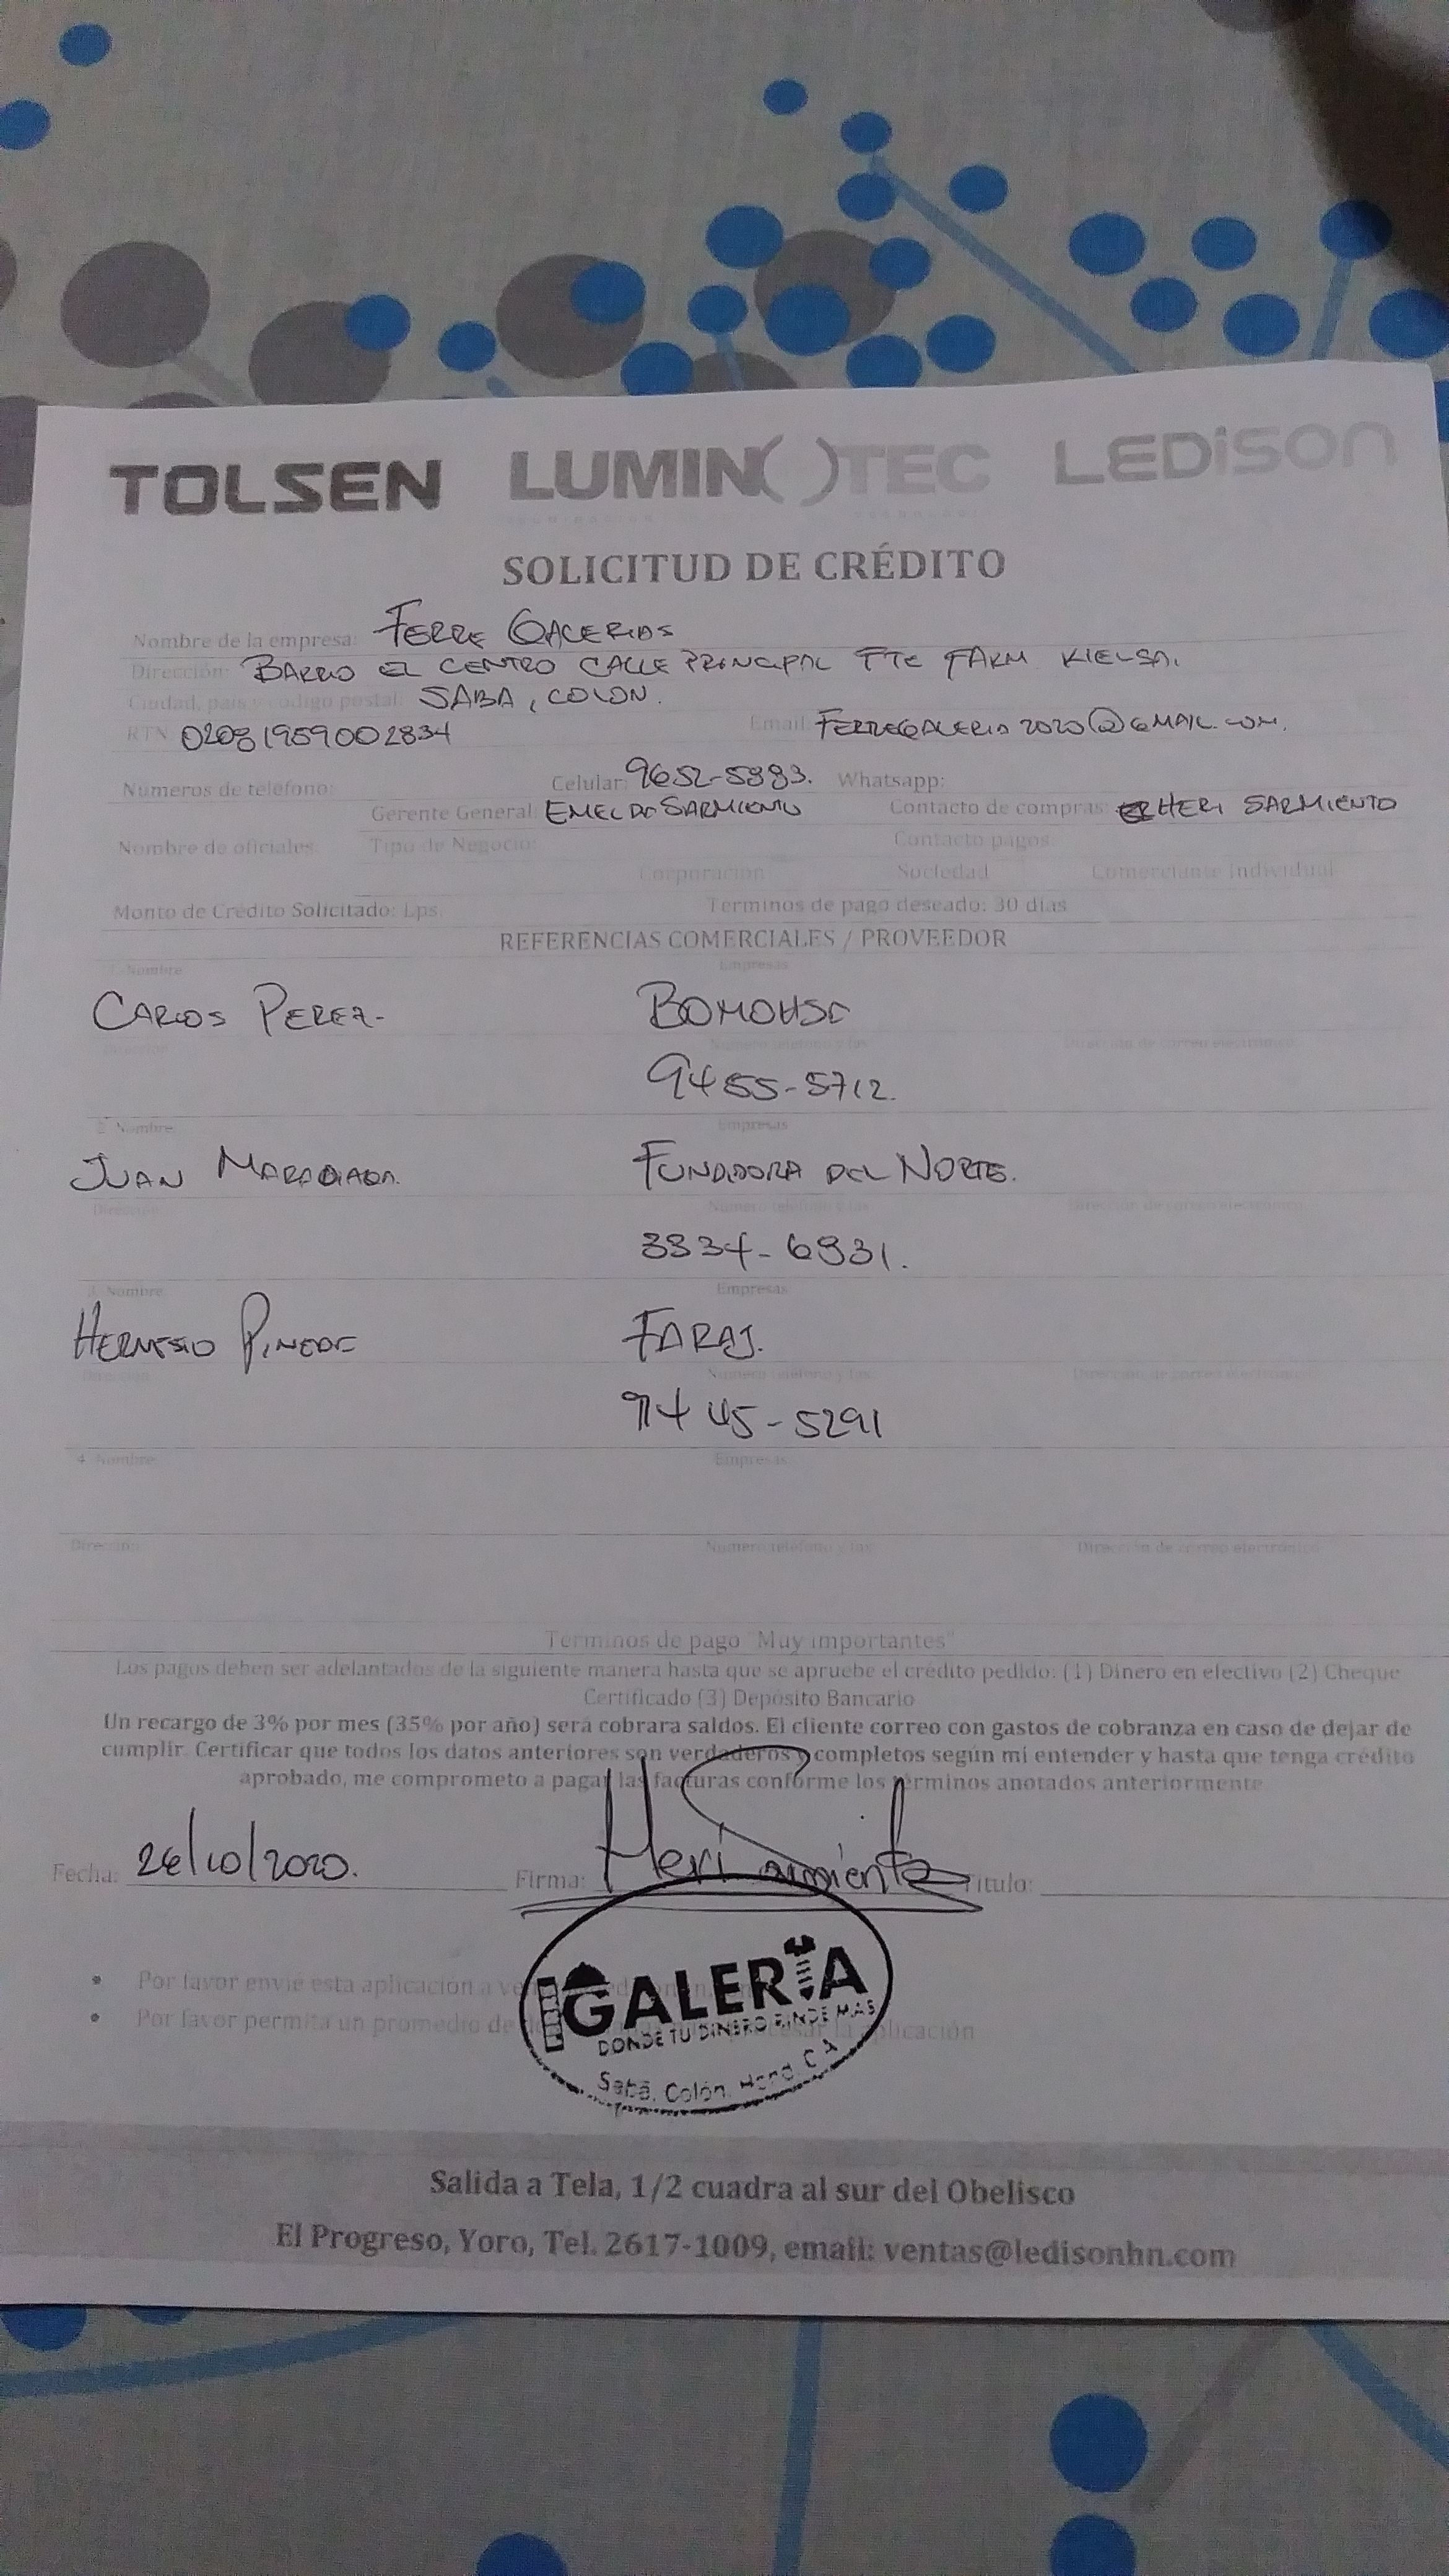 TOLSEN LUMIN()TEC LEDiSON
SOLICITUD DE CRÉDITO
Nombre de la empresa: FERRE GALERIAS
Dirección: BARRIO EL CENTRO CALLE PRINCIPAL FTE FARM KIELSA.
Ciudad, pais y codigo postal: SABA, COLON.
RTN: 02081959002834 Email: FERREGALERIA2020@GMAIL.COM.
Números de teléfono: Celular: 9652-5893. Whatsapp:
Gerente General: EMELDA SARMIENTO Contacto de compras: HERI SARMIENTO
Nombre de oficiales: Tipo de Negocio: Contacto pagos:
Corporación Sociedad Comerciante Individual
Monto de Crédito Solicitado: Lps. Términos de pago deseado: 30 días
REFERENCIAS COMERCIALES / PROVEEDOR
1. Nombre Empresas
CARLOS PEREZ-
Dirección Número teléfono y fax Dirección de correo electrónico
9455-5712.
2. Nombre Empresas
JUAN MARADIAGA. FUNDIDORA DEL NORTE.
Dirección Número teléfono y fax Dirección de correo electrónico
3334-6931.
3. Nombre Empresas
PINEDA FARAJ.
Dirección Número teléfono y fax Dirección de correo electrónico
9445-5291
4. Nombre Empresas
Dirección Número teléfono y fax Dirección de correo electrónico
Términos de pago "Muy importantes"
Los pagos deben ser adelantados de la siguiente manera hasta que se apruebe el crédito pedido: (1) Dinero en efectivo (2) Cheque
Certificado (3) Depósito Bancario
Un recargo de 3% por mes (35% por año) será cobrara saldos. El cliente correo con gastos de cobranza en caso de dejar de
cumplir. Certificar que todos los datos anteriores son verdaderos y completos según mi entender y hasta que tenga crédito
aprobado, me comprometo a pagar las facturas conforme los términos anotados anteriormente
Fecha: 26/10/2020. Firma: Heri Sarmiento Titulo:
Por favor envié esta aplicación a
Por favor permita un promedio de la aplicación
GALERIA
DONDE TU DINERO RINDE MAS
Sabá, Colón, Hond. C.A
Salida a Tela, 1/2 cuadra al sur del Obelisco
El Progreso, Yoro, Tel. 2617-1009, email: ventas@ledisonhn.com